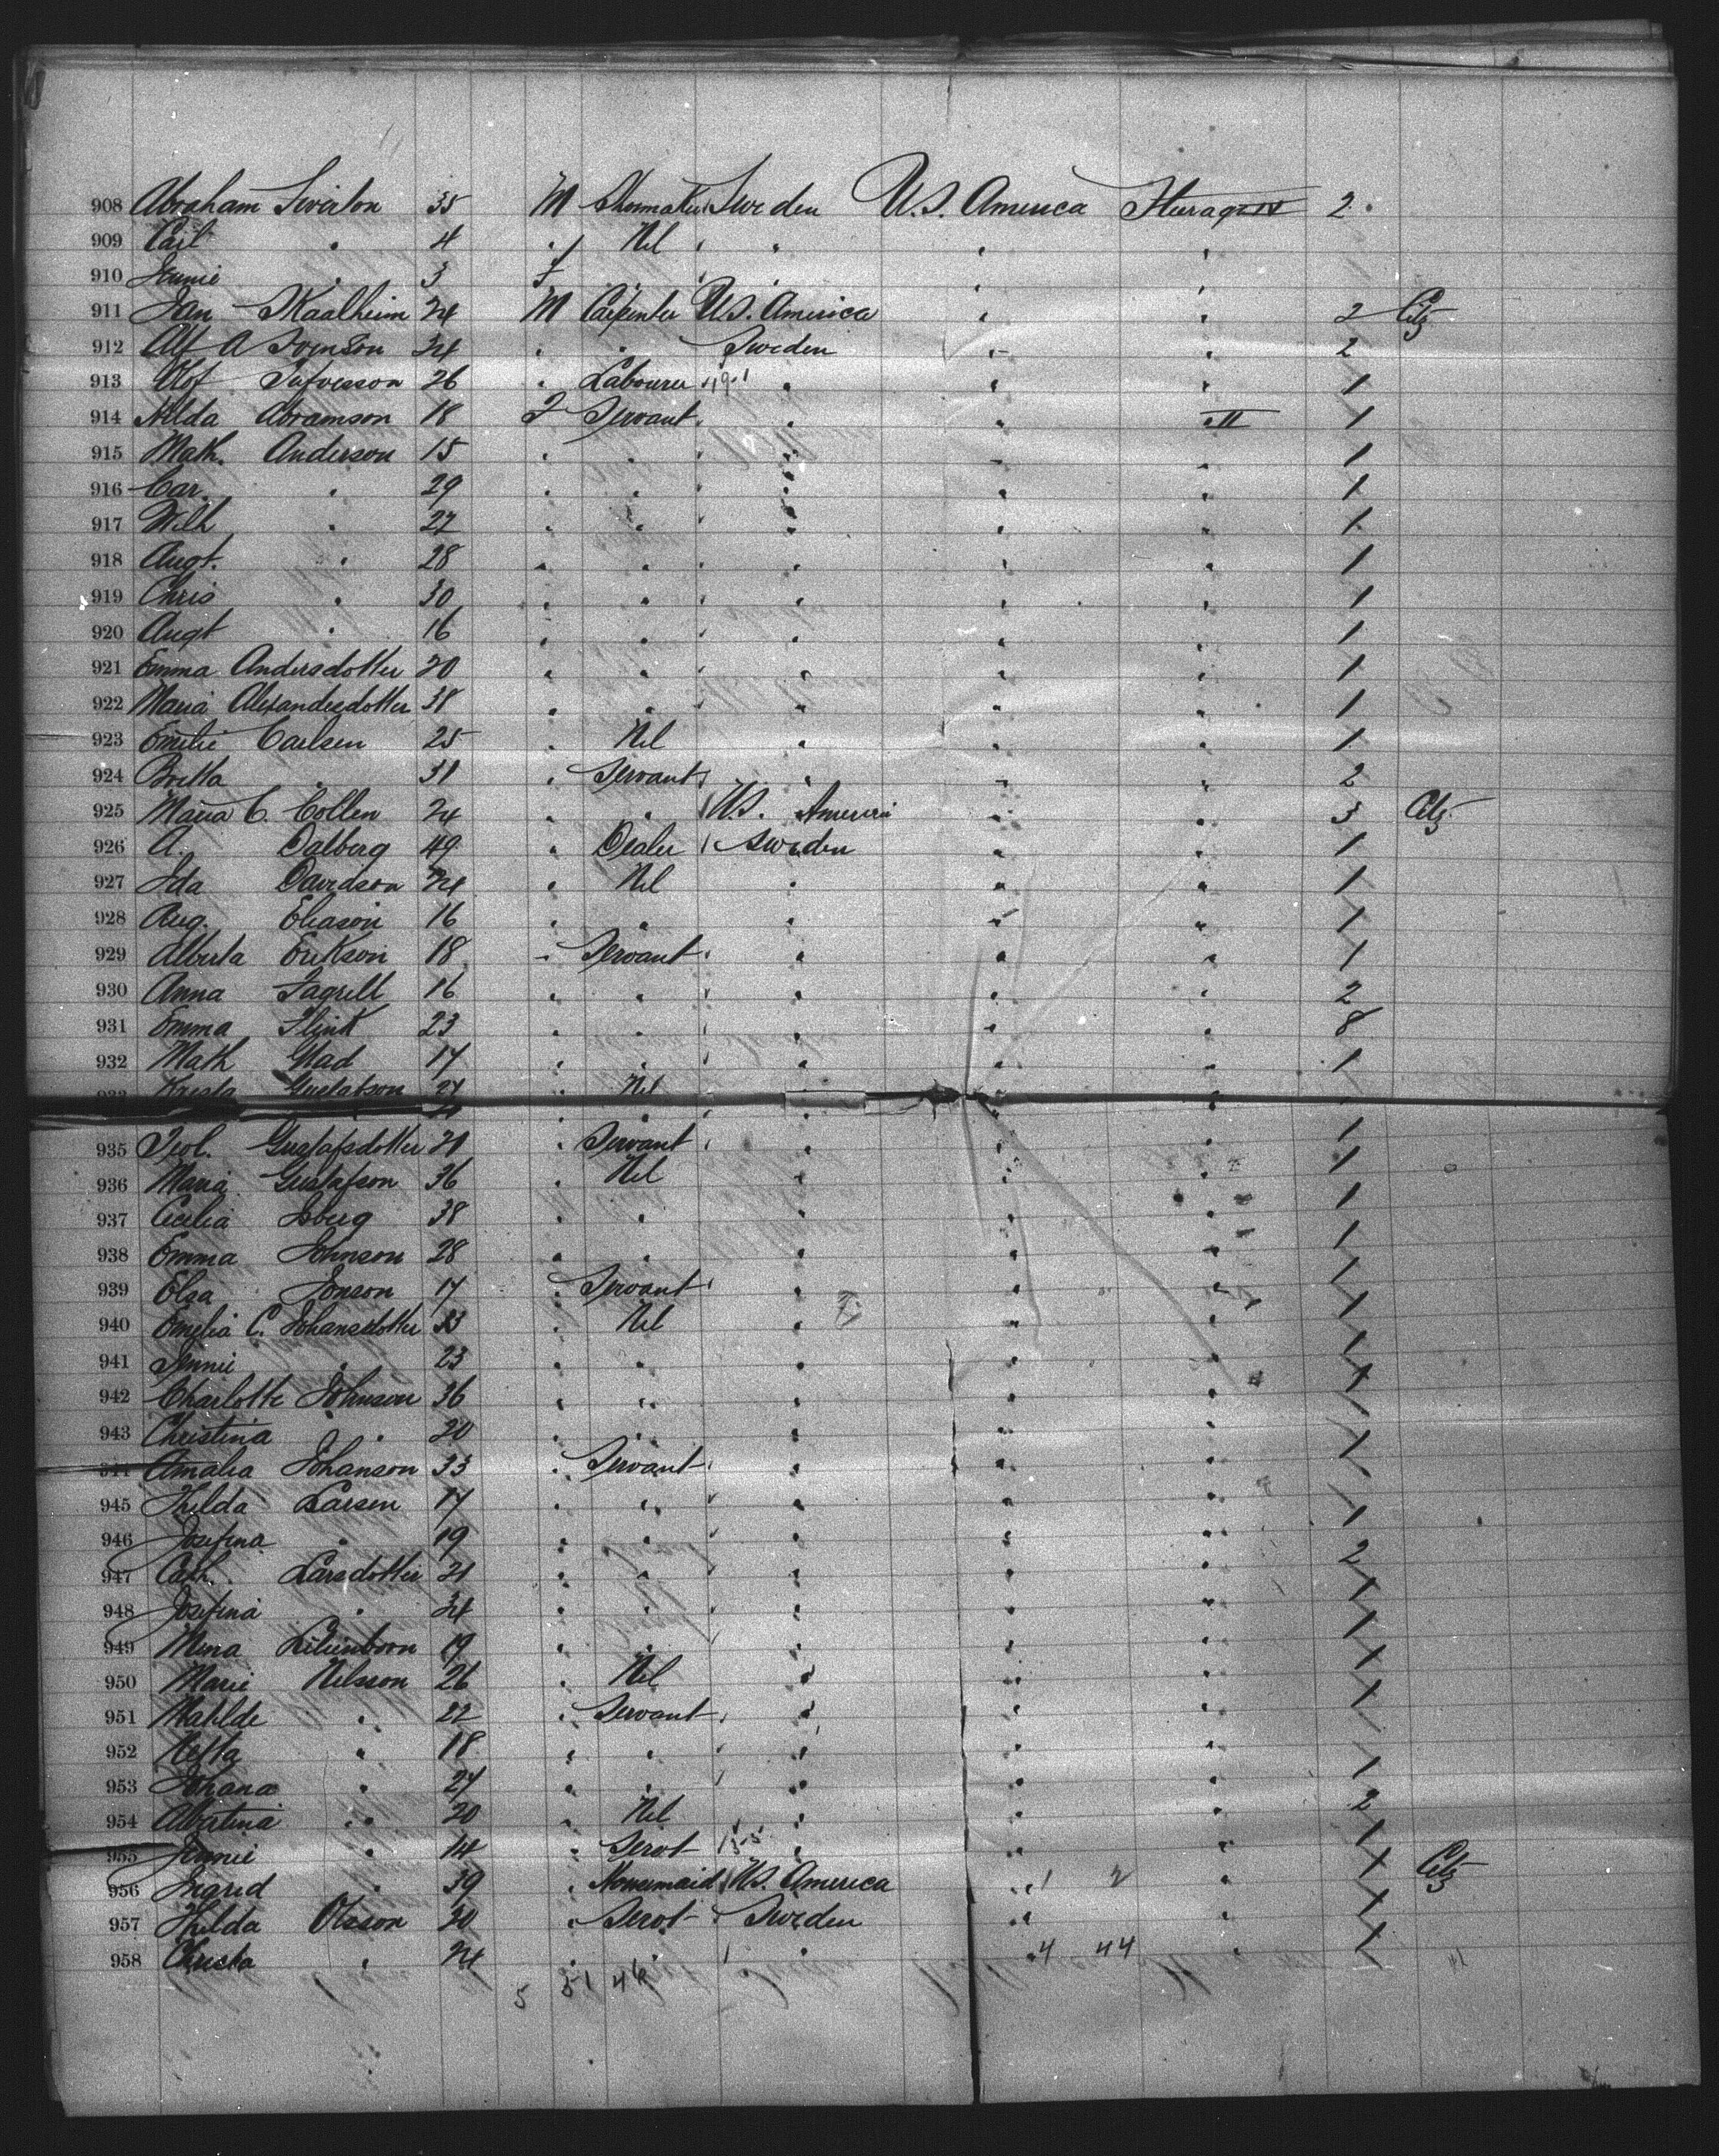 908 Abraham Siverton 35 M Shoemaker Sweden U.S. America Steerage 2
909 Carl " 4 " Nil " " " "
910 Jennie " 3 f " " " " "
911 Jan Skaalheim 24 M Carpenter U.S. America " " 2 Citz
912 Alf A Svenson 34 " " Sweden " " 2
913 Olof 26 " Labourer " " " 1
914 Hilda Abramson 18 F Servant " " " II 1
915 Math. Anderson 15 " " " " " 1
916 Car. " 29 " " " " " 1
917 Wilh " 27 " " " " " 1
918 Augt. " 28 " " " " " 1
919 Chris " 30 " " " " " 1
920 Augt " 16 " " " " " 1
921 Emma Andersdotter 20 " " " " " 1
922 Maria Alexandersdotter 38 " " " " " 1
923 Emelie Carlsen 25 " Nil " " " 1
924 Britta " 31 " Servant " " " 2
925 Maria C. Collen 24 " " U.S. Ameri " " 3 Citz
926 A. Dalberg 49 " Dealer Sweden " " 1
927 Ida Davidson 24 " Nil " " " 1
928 Aug. Eliason 16 " " " " " 1
929 Alberta Erikson 18 " Servant " " " 1
930 Anna Fagrell 16 " " " " " 2
931 Emma Flink 23 " " " " " 8
932 Math Glad 17 " " " " " 1
933 Krista Gustafson 27 " Nil " " "
935 Gustafsdotter 21 " Servant " " " 1
936 Maria Gustafson 36 " Nil " " " 1
937 Cecilia Isberg 38 " " " " " 1
938 Emma Johnson 28 " " " " " 1
939 Elsa Jonson 17 " Servant " " " 1
940 Emelia C. Johansdotter 33 " Nil " " " 1
941 Jennie " 23 " " " " " 1
942 Charlotte Johnson 36 " " " " " 1
943 Christina " 20 " " " " " 1
944 Amalia Johanson 33 " Servant " " " 1
945 Hilda Larsen 17 " " " " " 1
946 Josefina " 19 " " " " " 1
947 Cath. Larsdotter 21 " " " " " 2
948 Josefina " 24 " " " " " 1
949 Mina Lilienborn 19 " " " " " 1
950 Marie Nilsson 26 " Nil " " " 1
951 Matilde " 22 " Servant " " " 1
952 Netta " 18 " " " " " 1
953 Johana " 27 " " " " " 1
954 Albertina " 20 " Nil " " " 2
955 Jennie " 14 " Servt " " " 1
956 Ingrid " 39 " Housemaid U.S. America " 1 2 " 1 Citz
957 Hilda Olsson 20 " Servt Sweden " " 1
958 Christa " 24 " " " 4 44 " 1
5 51 46